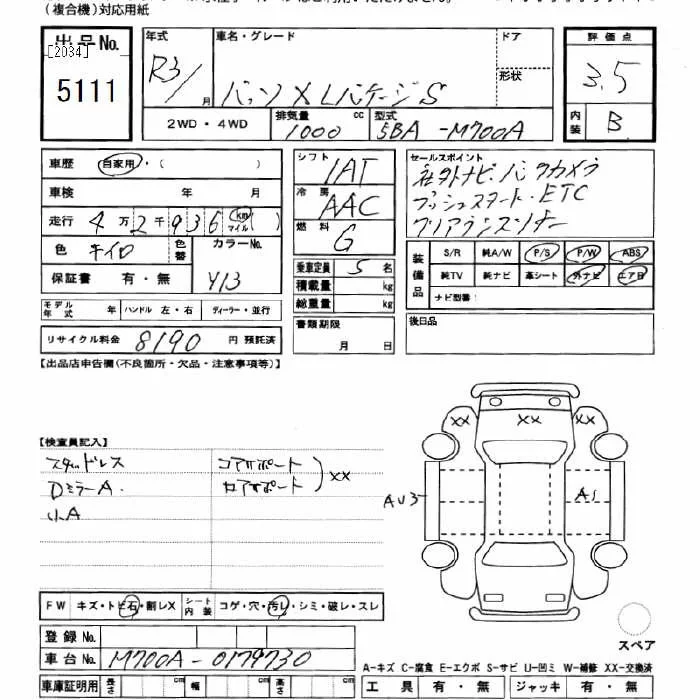 (複合機)対応用紙
出品No. [2034] 5111
年式 R3/ 月
車名・グレード パッソ X Lパッケージ S
ドア
形状
評価点 3.5
内装 B
2WD・4WD 排気量 1000 cc 型式 5BA-M700A
車歴 自家用・( )
車検 年 月
走行 4万2千936 km マイル ( )
色 キイロ 色替 カラーNo. Y13
保証書 有・無
モデル年式 年 ハンドル 左・右 ディーラー・並行
リサイクル料金 8190 円 預託済
シフト IAT
冷房 AAC
燃料 G
乗車定員 5 名
積載量 kg
総重量 kg
書類期限 月 日
セールスポイント
社外ナビ・バックカメラ
プッシュスタート・ETC
クリアランスソナー
装備品 S/R 純A/W P/S P/W ABS
純TV 純ナビ 革シート 外ナビ エアB
ナビ型番:
後日品
【出品店申告欄(不良箇所・欠品・注意事項等)】
【検査員記入】
スタッドレス コアサポート
DミラーA. ロアサポート ) XX
小A
XX XX XX
AU3 A1
FW キズ・トビ石・割レX シート内装 コゲ・穴・汚レ・シミ・破レ・スレ
登録No.
車台No. M700A-0179730
スペア
A-キズ C-腐食 E-エクボ S-サビ U-凹ミ W-補修 XX-交換済
車庫証明用 長さ cm 幅 cm 高さ cm
工具 有・無 ジャッキ 有・無